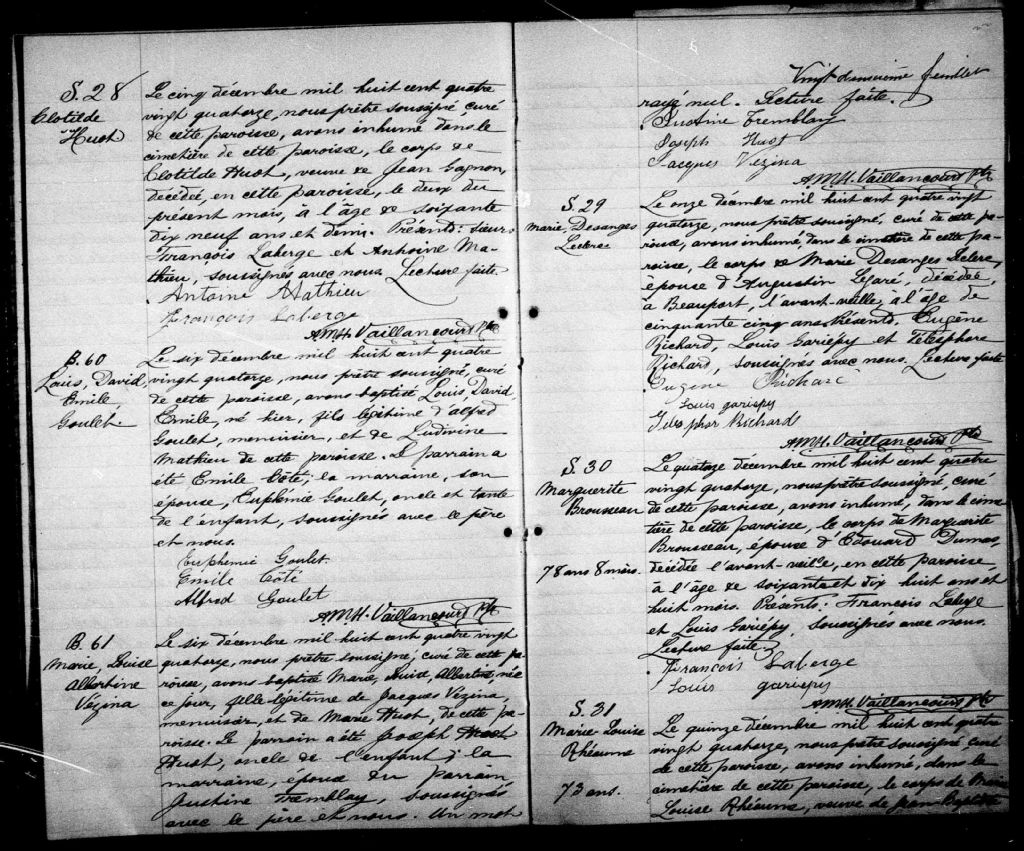 S. 28
Clotilde
Huot
Le cinq décembre mil huit cent quatre
vingt quatorze, nous prêtre soussigné curé
de cette paroisse, avons inhumé dans le
cimetière de cette paroisse, le corps de
Clotilde Huot, veuve de Jean Gagnon,
décédée, en cette paroisse, le deux du
présent mois, à l'âge de soixante
dix neuf ans et demi. Présents: sieurs
François Laberge et Antoine Ma-
thieu, soussignés avec nous. Lecture faite.
Antoine Mathieu
François Laberge
A.M.H. Vaillancourt Ptre
B. 60
Louis, David,
Emile
Goulet.
Le six décembre mil huit cent quatre
vingt quatorze, nous prêtre soussigné, curé
de cette paroisse, avons baptisé Louis, David,
Emile, né hier, fils légitime d'Alfred
Goulet, menuisier, et de Ludivine
Mathieu de cette paroisse. Le parrain a
été Emile Côté; la marraine, son
épouse, Euphémie Goulet, oncle et tante
de l'enfant, soussignés avec le père
et nous.
Euphemie Goulet.
Emile Côté
Alfred Goulet
A.M.H. Vaillancourt Ptre
B. 61
Marie, Louise
Albertine
Vézina
Le six décembre mil huit cent quatre vingt
quatorze, nous prêtre soussigné, curé de cette pa-
roisse, avons baptisé Marie, Louise, Albertine, née
ce jour, fille légitime de Jacques Vézina,
menuisier, et de Marie Huot, de cette pa-
roisse. Le parrain a été Joseph Huot
Huot, oncle de l'enfant; la
marraine, épouse du parrain
Justine Tremblay, soussignés
avec le père et nous. Un mot
Vingt deuxième feuillet
rayé nul. Lecture faite.
Justine Tremblay
Joseph Huot
Jacques Vezina
A.M.H. Vaillancourt Ptre
S. 29
Marie, Desanges
Leclerc
Le onze décembre mil huit cent quatre vingt
quatorze, nous prêtre soussigné, curé de cette pa-
roisse, avons inhumé dans le cimetière de cette pa-
roisse, le corps de Marie Desanges Leclerc,
épouse d'Augustin Légaré, décédée,
à Beauport, l'avant-veille, à l'âge de
cinquante cinq ans. Présents, Eugène
Richard, Louis Gariépy et Télésphore
Richard, soussignés avec nous. Lecture faite
Eugène Richard
Louis gariepy
Telesphor Richard
A.M.H. Vaillancourt Ptre
S. 30
Marguerite
Brousseau
78 ans 8 mois.
Le quatorze décembre mil huit cent quatre
vingt quatorze, nous prêtre soussigné, curé
de cette paroisse, avons inhumé, dans le cime-
tière de cette paroisse, le corps de Marguerite
Brousseau, épouse d'Edouard Dumas,
décédée l'avant-veille, en cette paroisse,
à l'âge de soixante et dix huit ans et
huit mois. Présents: François Laberge
et Louis Gariépy, soussignés avec nous.
Lecture faite,
François Laberge
Louis gariepy
A.M.H. Vaillancourt Ptre
S. 31
Marie Louise
Rhéaume
73 ans.
Le quinze décembre mil huit cent quatre
vingt quatorze, nous prêtre soussigné curé
de cette paroisse, avons inhumé, dans le
cimetière de cette paroisse, le corps de Marie
Louise Rhéaume, veuve de Jean-Baptiste